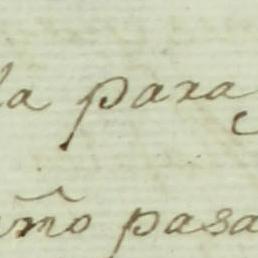 la para
m̃o pasa